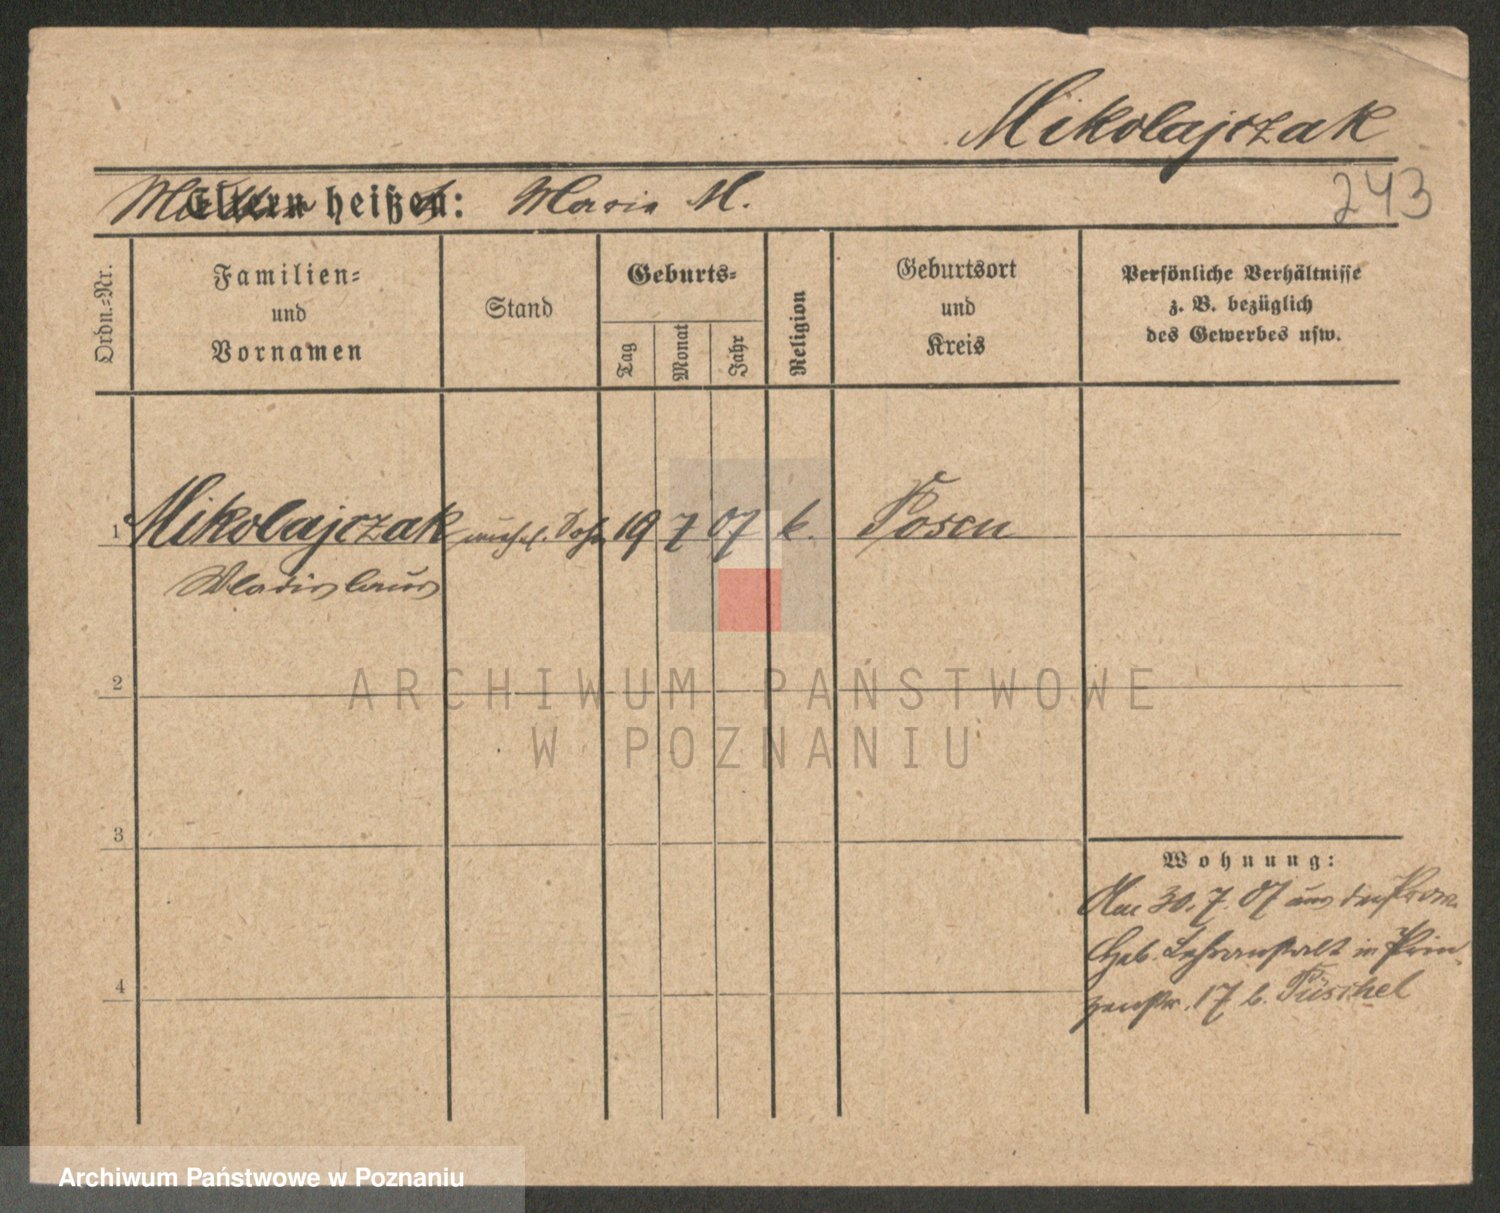 Mikolajczak
243
Mutter heißt: Maria M.
Ordn.-Nr.
Familien-
und
Vornamen
Stand
Geburts-
Tag
Monat
Jahr
Religion
Geburtsort
und
Kreis
Persönliche Verhältnisse
z. B. bezüglich
des Gewerbes usw.
1 Mikolajczak unehel. Sohn 19 7 07 k. Posen
Wladislaus
2
ARCHIWUM PAŃSTWOWE
W POZNANIU
3
Wohnung:
Am 30.7.07 aus der Prov.
Heb. Lehranstalt in Prin-
zenstr. 17 b. Püschel
4
Archiwum Państwowe w Poznaniu